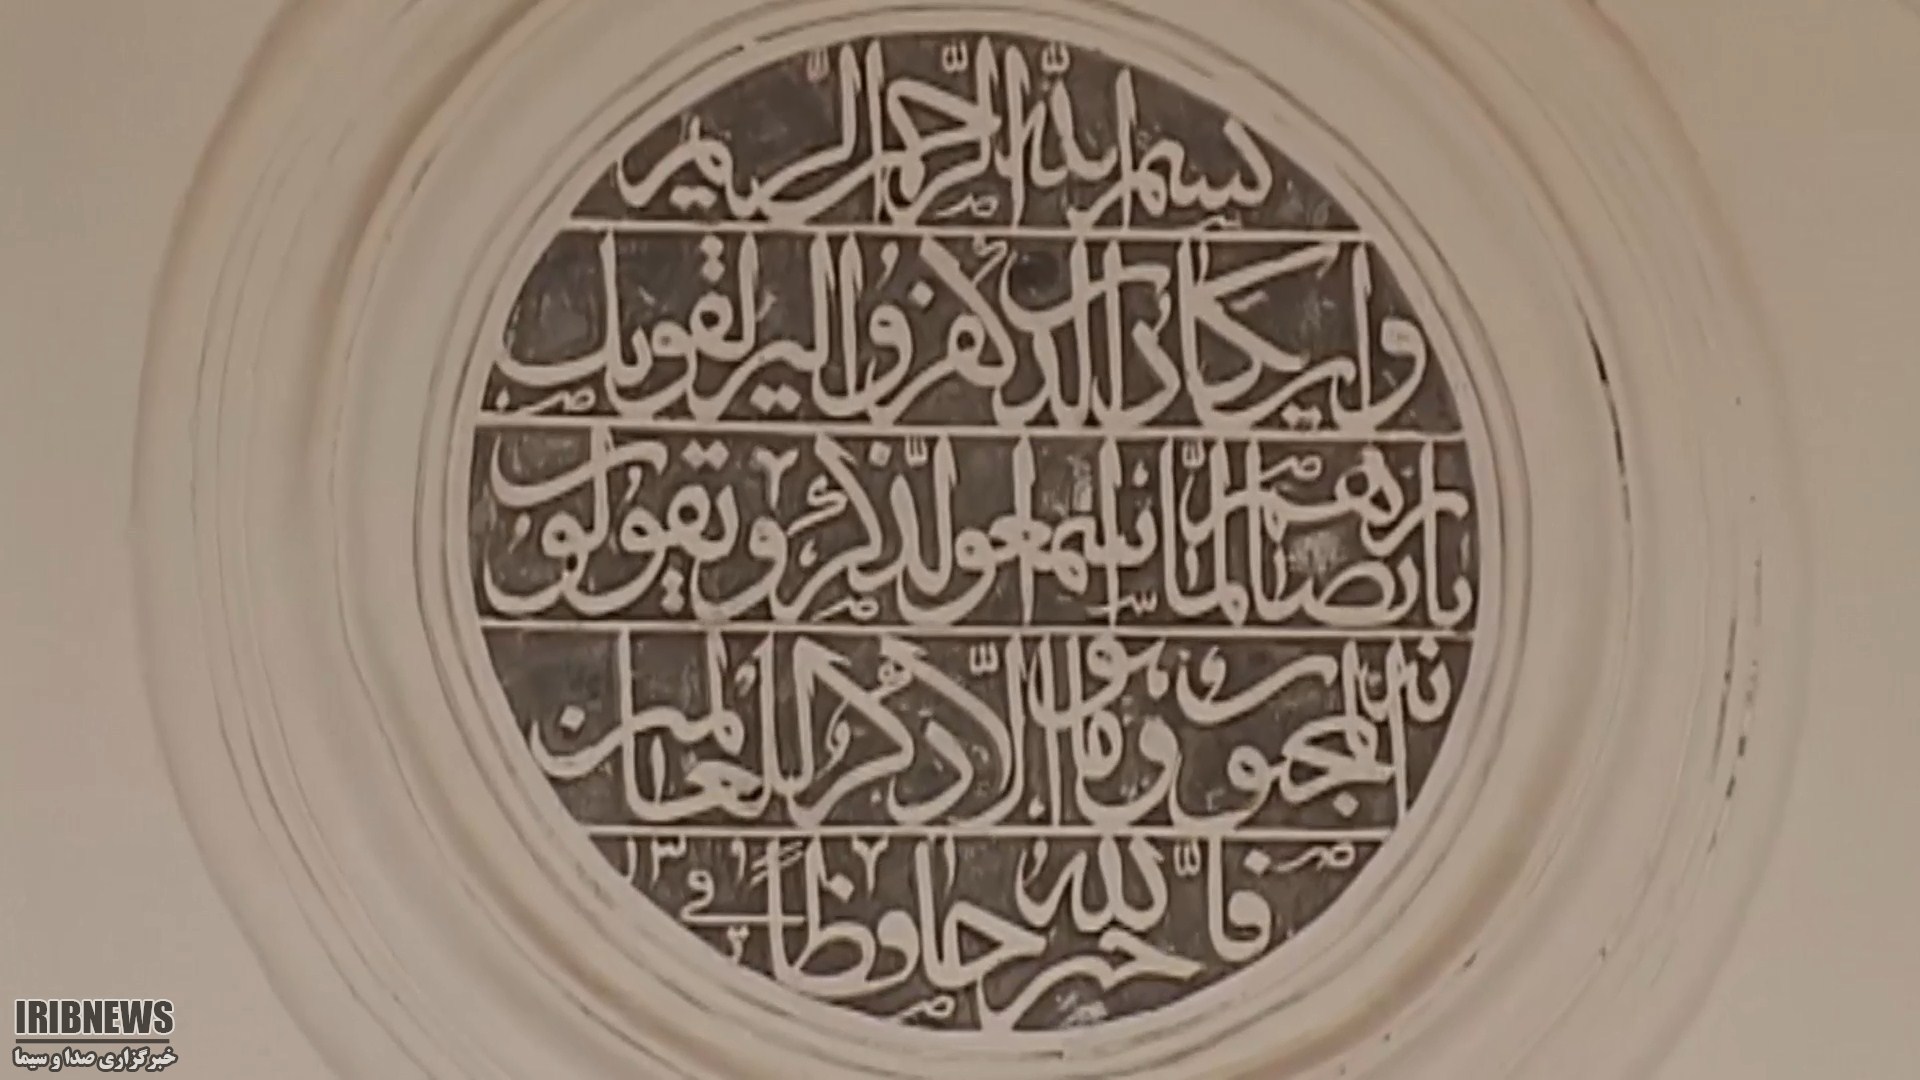 بسم الله الرحمن الرحيم
وان يكاد الذين كفروا ليزلقونك
بابصارهم لما سمعوا لذكر ويقولون
انه لمجنون وما هو الا ذكر للعالمين
فالله خير حافظا
IRIBNEWS
خبرگزاری صدا و سیما